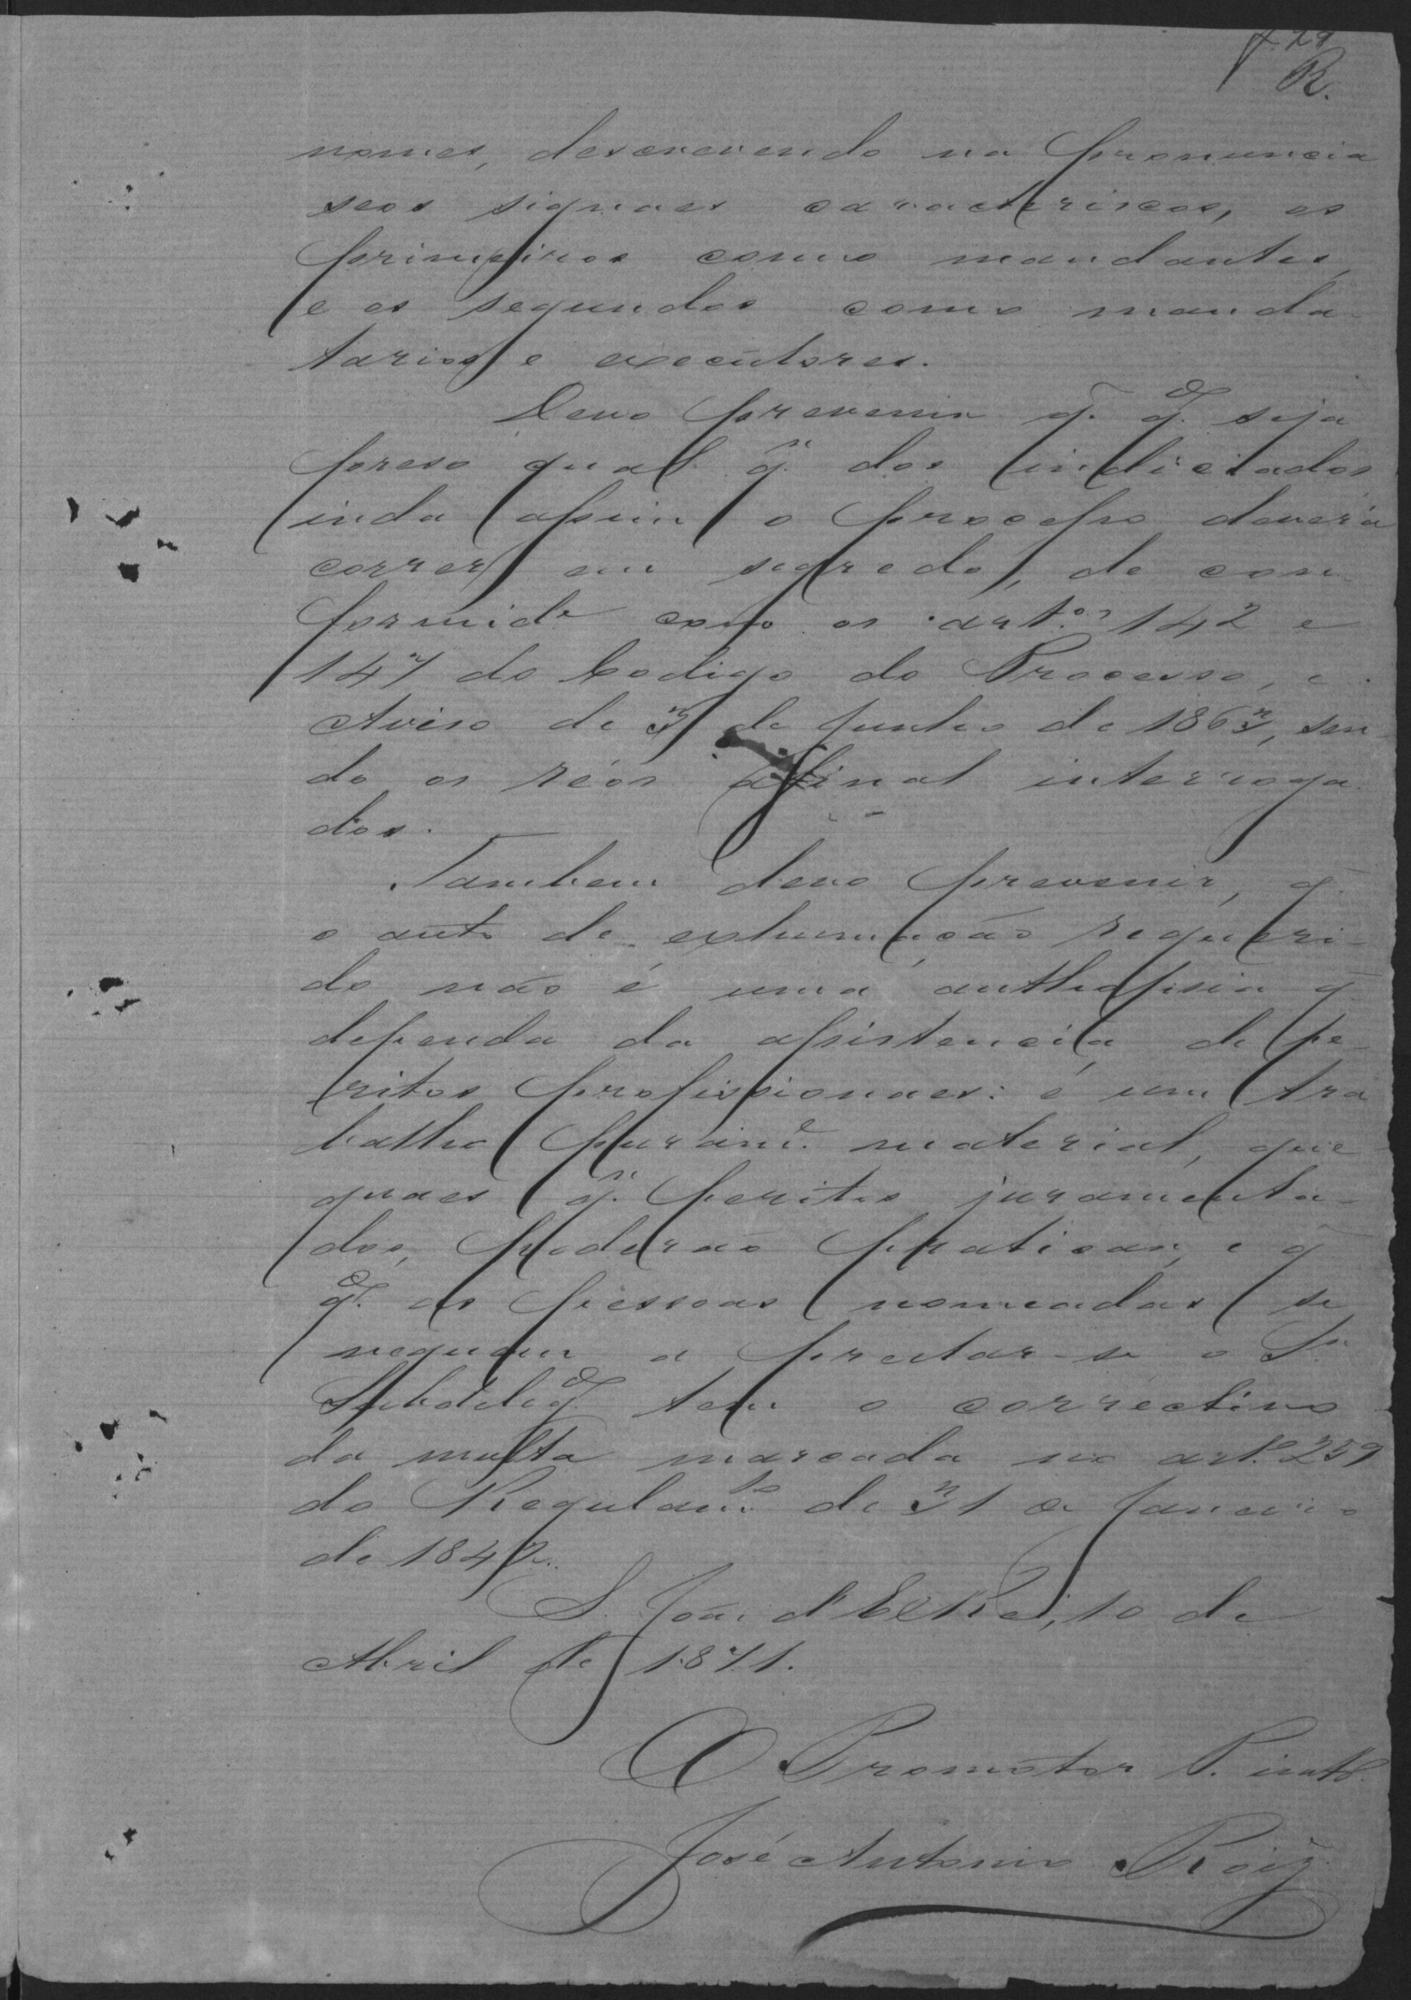 f. 29
R.
nomes, descrevendo na pronuncia
seos signaes caracteriscos, os
primeiros como mandantes,
e os segundos como manda-
tarios e executores.
Devo prevenir q. qdo. seja
preso qual qr. dos indiciados
inda assim o processo deverá
correr em segredo, de con-
formide. com os artos. 142 e
147 do Codigo do Processo, e
Aviso de 3 de Junho de 1863, sen-
do os réos afinal interroga-
dos.
Tambem devo prevenir, q.
o auto de exhumação requeri-
do não é uma authopsia q.
dependa da assistencia de pe-
ritos profissionaes: é um tra-
balho puramte. material, que
quaes qr. peritos juramenta-
dos, poderão praticar, e q.
qdo. as pessoas nomeadas se
neguem a prestar-se o Sr.
Subdelego. tem o correctivo
da multa marcada no arto. 259
do Regulamto. de 31 de Janeiro
de 1842.
S. João d'El Rei, 10 de
Abril de 1871.
O Promotor P.
José Antonio Roiz